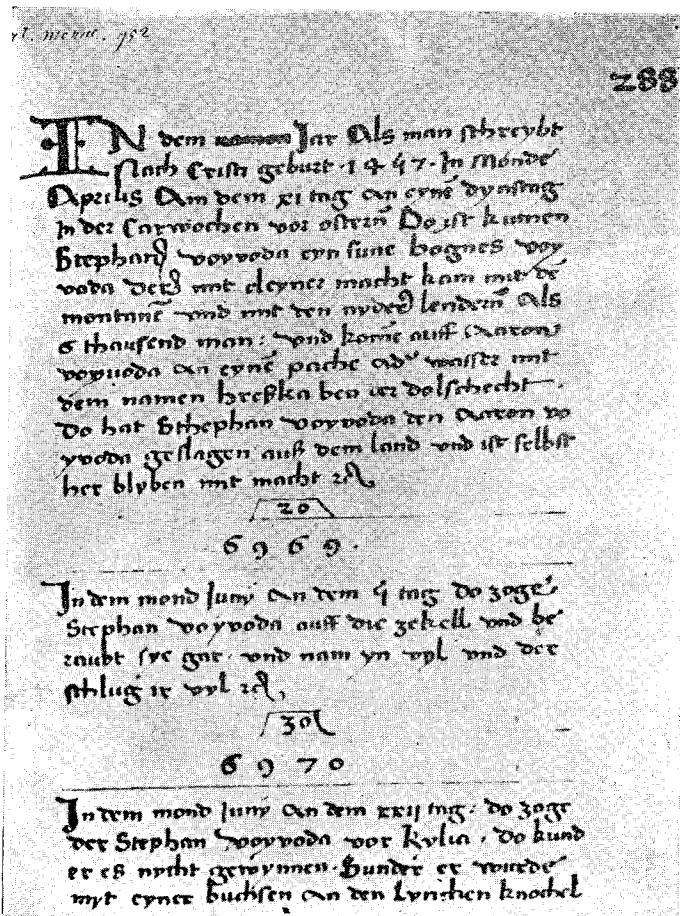 288
IN dem Jar Als man schreybt
Nach Cristi geburt · 1457 · In Monde
Aprilis Am dem xi tag An eynē dynstag
In der Carwochen vor osterm Do ist kumen
Stephan voyvoda eyn sune bognes voy
voda Der mit cleyner macht kam mit dē
montanē vnd mit den nyder lendern Als
6 thausend man : vnd komē auff Aaron
voyvoda An eynē pache ader wasser mit
dem namen hreska ben
Do hat Sthephan voyvoda den Aaron vo
yvoda geslagen auß dem land vnd ist selbst
her blyben mit macht
20
6969 ·
In dem mond Juny An dem 5 tag Do zoge
Stephan voyvoda auff die zekell vnd be
raubt sye gar · vnd nam yn vyl vnd der
schlug ir vyl
30
6970
In dem mond Juny An dem xxij tag · do zoge
der Stephan voyvoda vor Kylia · do kund
er es nycht gewynnen · Sunder er wurde
myt eyner buchsen An den Lyncken knochel